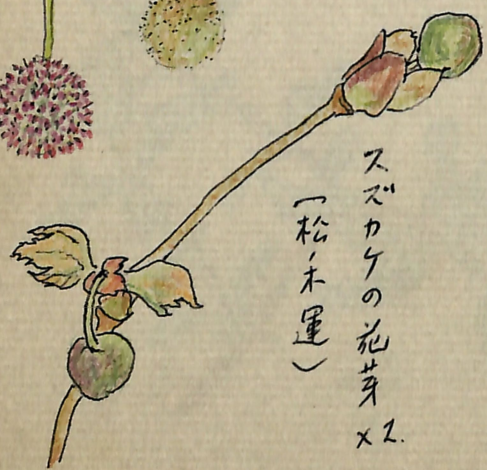 スズカケの花芽 x2.
(松ノ木運)